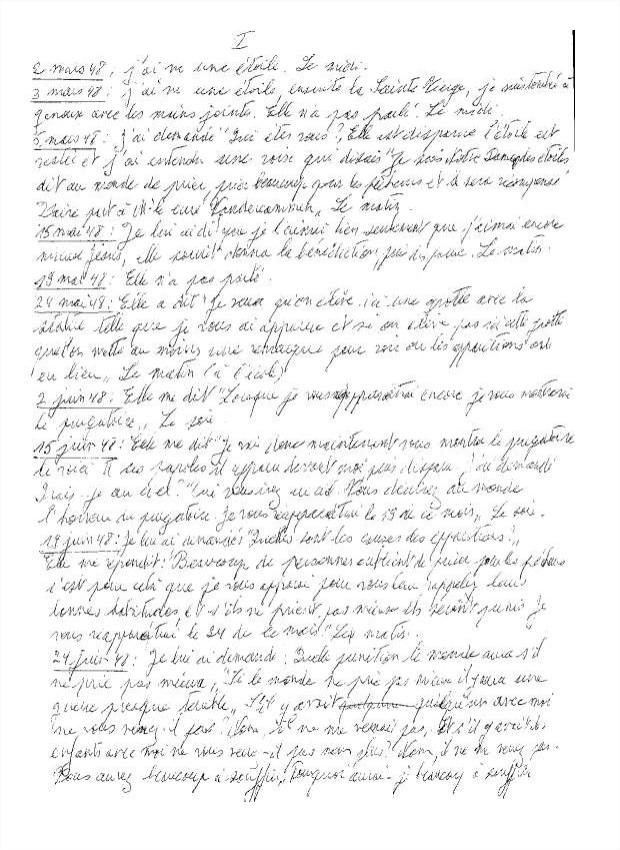 I
2 mars 48, j'ai vu une étoile. Le midi.
3 mars 48: j'ai vu une étoile, ensuite la Sainte Vierge, je suis tombé à
genoux avec les mains jointes. Elle n'a pas parlé. Le midi.
5 mars 48: J'ai demandé "Qui êtes vous?" Elle est disparue l'étoile est
restée et j'ai entendu une voix qui disais "Je suis Notre Dame des étoiles
dit au monde de prier, prier beaucoup pour les pécheurs et il sera récompensé
Faire part à M. le curé Le matin.
15 mai 48: Je lui ai dit que je l'aimais bien seulement que j'aimai encore
mieux Jésus, elle sourit donna la bénédiction, puis disparue. Le matin.
19 mai 48: Elle n'a pas parlé.
24 mai 48: Elle a dit "Je veux qu'on élève ici une grotte avec la
statue telle que je vous ai apparue et si on élève pas ici cette grotte
qu'on mette au moins une remarque pour voir ou les apparitions ont
eu lieu" Le matin (à l'école)
2 juin 48: Elle me dit "Lorsque je vous apparaitrai encore je vous montrerai
le purgatoire" Le soir.
15 juin 48: Elle me dit "Je vai donc maintenant vous montrer le purgatoire
le voici" Il ces paroles il apparu devant moi puis disparu. J'ai demandé
Irai-je au ciel? "Oui vous irez au ciel. Vous décrirez au monde
l'horreur du purgatoire. Je vous réapparaitrai le 19 de ce mois" Le soir.
19 juin 48: Je lui ai demandé: "Quelles sont les causes des apparitions?"
Elle me répondit: "Beaucoup de personnes oublient de prier pour les pécheurs
c'est pour cela que je vous apparai pour vous leur rappeler leurs
bonnes habitudes et s'ils ne prient pas mieux ils seront punis Je
vous réapparaitrai le 24 de ce mois" Le matin.
24 juin 48: Je lui ai demandé: Quelle punition le monde aura s'il
ne prie pas mieux, "Si le monde ne prie pas mieux il y aura une
guerre presque terrible" S'il y avait quelqu'un avec moi
ne vous verrez-il pas? Non, il ne me verrait pas. Et s'il y avait des
enfants avec moi ne vous verrai-il pas non plus? Non, il ne me verrez pas.
Vous aurez beaucoup à souffrir, Pourquoi aurai-je beaucoup à souffrir